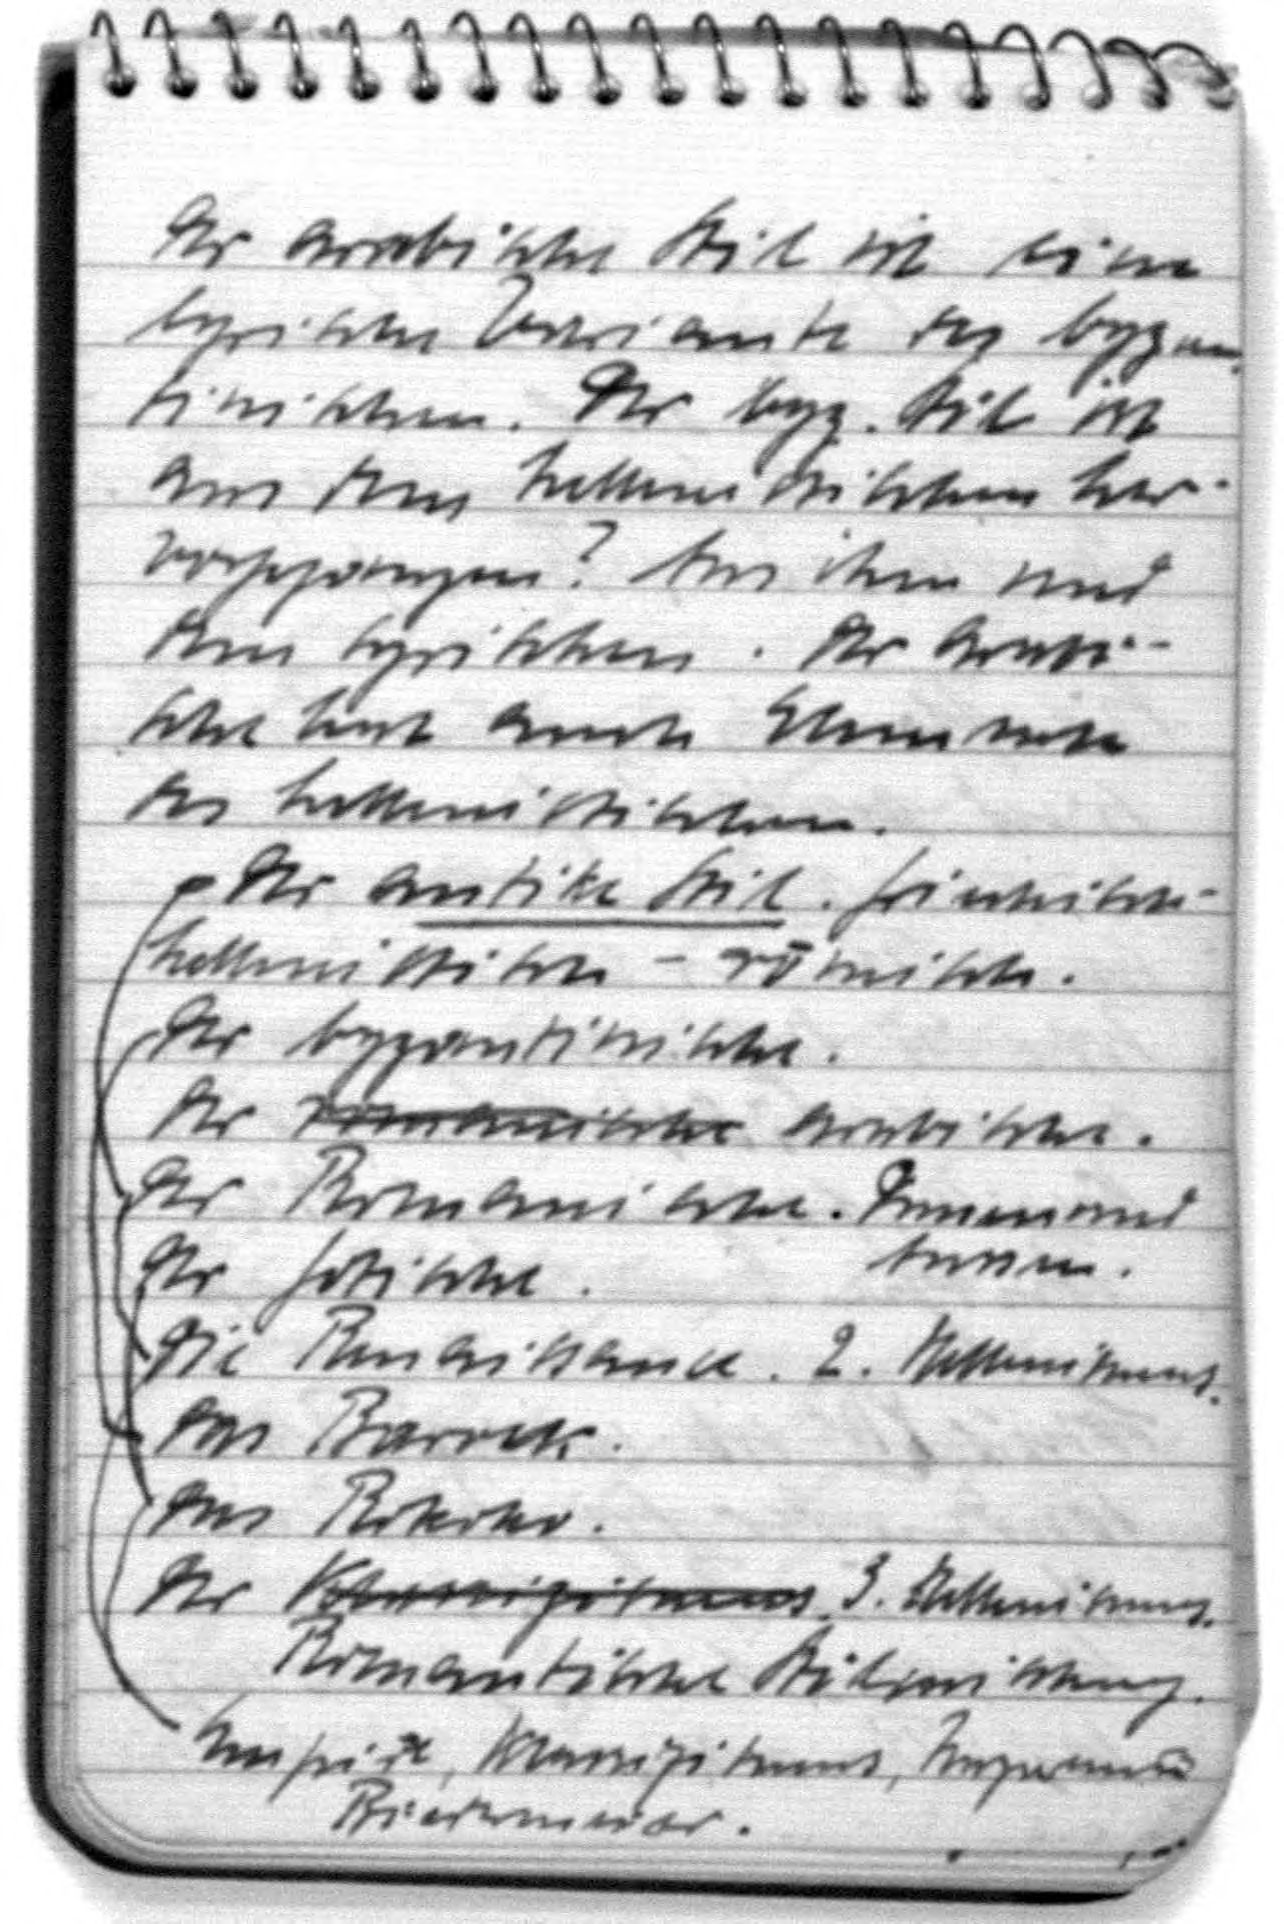 Der arabische Stil ist eine
syrische Variante des byzan-
tinischen. Der byz. Stil ist
aus dem hellenistischen her-
vorgegangen? Aus ihm und
dem syrischen. Der arabi-
sche hat auch Elemente
des hellenistischen.
Der antike Stil. Griechisch-
hellenistisch - römisch.
Der byzantinische.
Der romanische arabische.
Der Romanische. Innen und
aussen.
Der gotische.
Die Renaissance. 2. Hellenismus.
Das Barock.
Das Rokoko.
Der Klassizismus 3. Hellenismus.
Romantische Stilmischung.
Empire, Klassizismus,
Biedermeier.